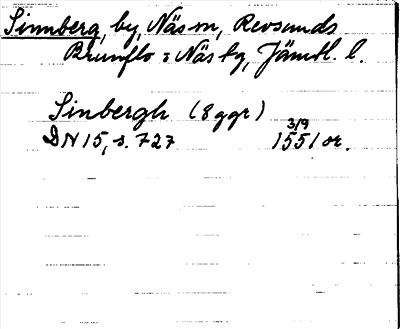 Sinnberg, by, Näs sn, Revsunds
Brunflo o Näs tg, Jämtl. l.
Sinbergh (8 ggr)
3/9
DN 15, s. 727 1551 or.